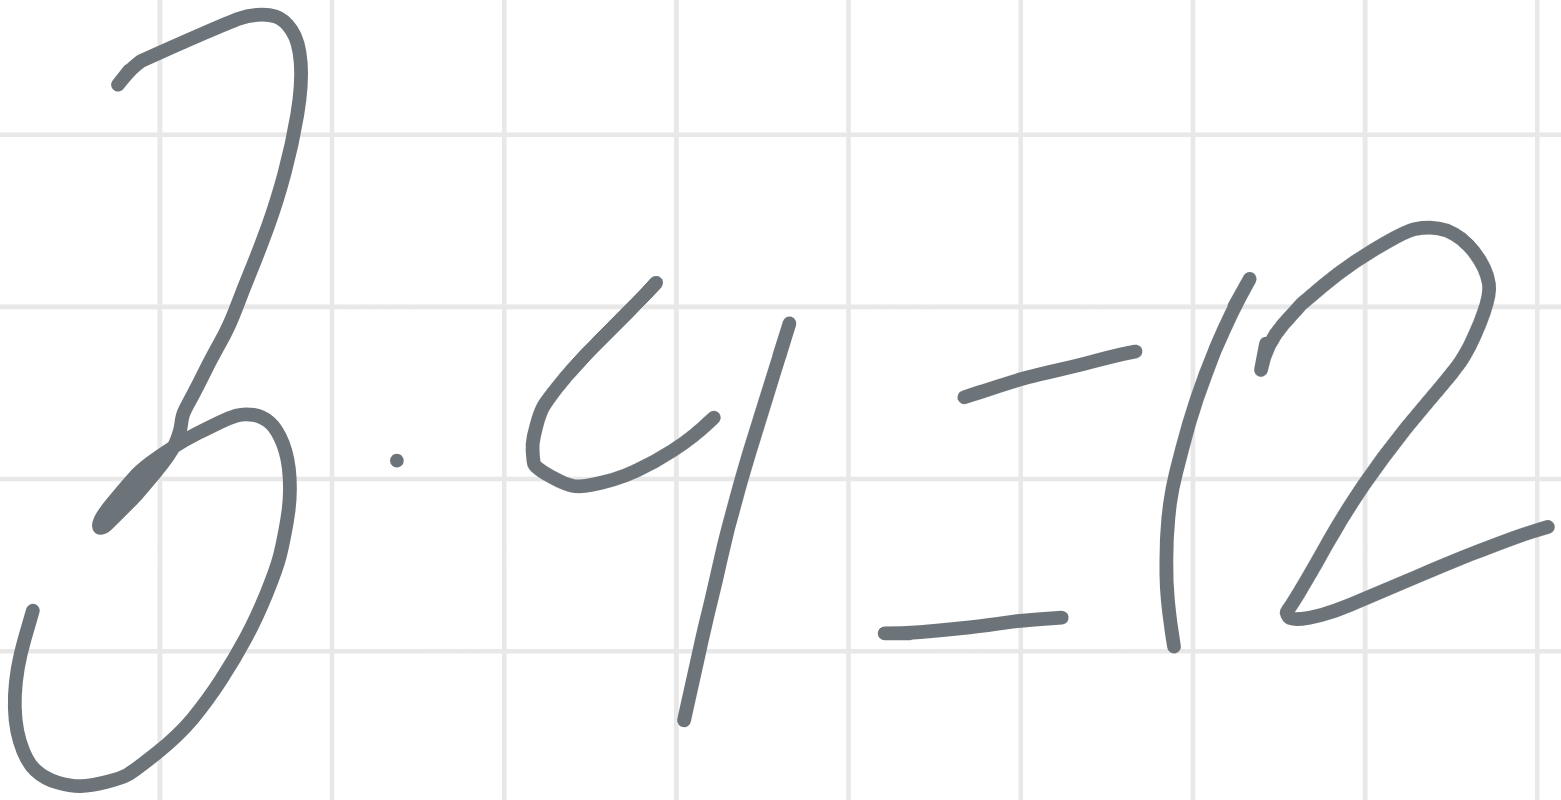 3 · 4 = 12